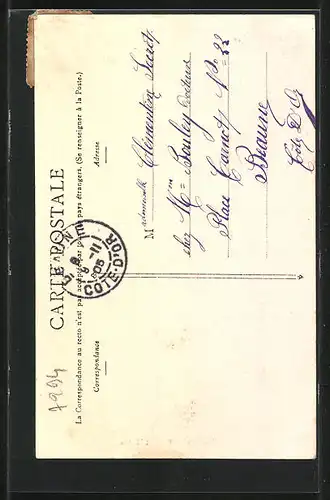 CARTE POSTALE
La Correspondance au recto n'est pas acceptée par tous pays étrangers. (Se renseigner à la Poste.)
Correspondance
Adresse
CÔTE-D'OR
Mademoiselle Clémentine
chez Mme
Place Carnot No 22
Beaune
Côte D'Or
7994